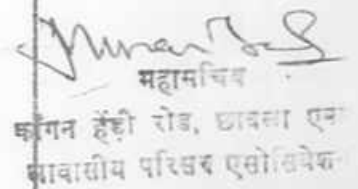 महासचिव
कॉगन हेंड़ी रोड, छावला एन
आवासीय परिसर एसोसियेशन